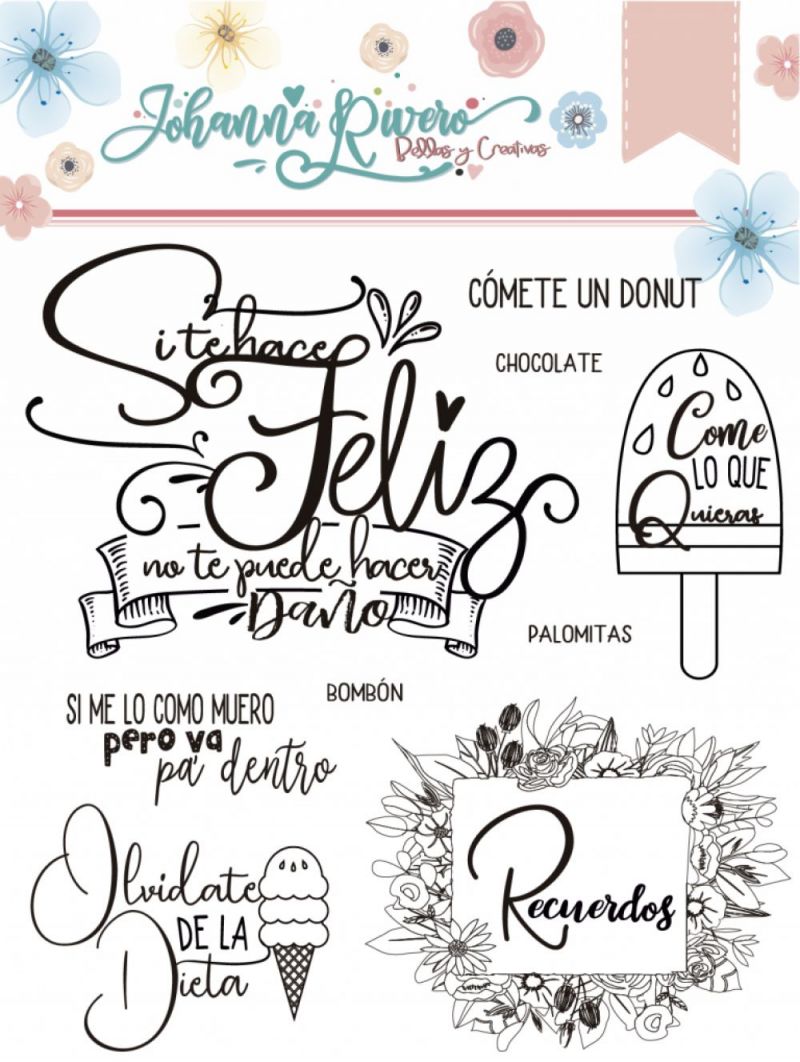 Johanna Rivero
Bellas y Creativas
CÓMETE UN DONUT
Si te hace
Feliz
no te puede hacer
Daño
CHOCOLATE
Come
LO QUE
Quieras
PALOMITAS
BOMBÓN
SI ME LO COMO MUERO
pero va
pa' dentro
Olvidate
DE LA
Dieta
Recuerdos